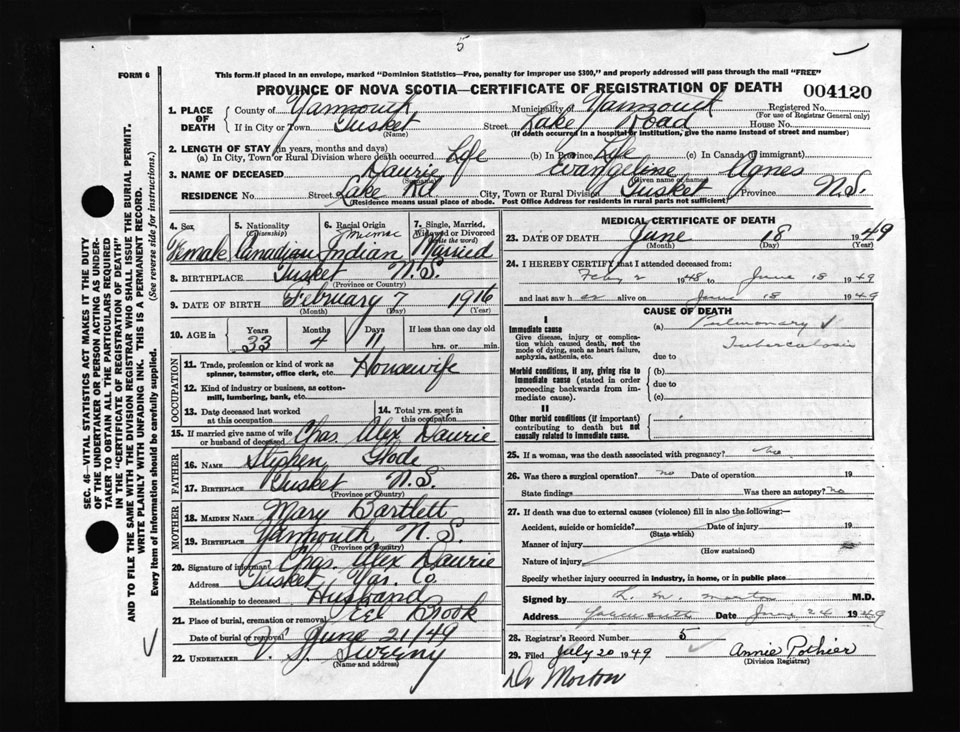 5
FORM 6
This form if placed in an envelope, marked "Dominion Statistics—Free, penalty for improper use $300," and properly addressed will pass through the mail "FREE"
PROVINCE OF NOVA SCOTIA—CERTIFICATE OF REGISTRATION OF DEATH
004120
1. PLACE OF DEATH
County of Yarmouth Municipality of Yarmouth Registered No.
(For use of Registrar General only)
If in City or Town Tusket Street Lake Road House No.
(Name) (If death occurred in a hospital or institution, give the name instead of street and number)
2. LENGTH OF STAY (in years, months and days)
(a) In City, Town or Rural Division where death occurred Life (b) In Province Life (c) In Canada (if immigrant)
3. NAME OF DECEASED Laurie Evangeline Agnes
(Surname) (Given name or names)
RESIDENCE No. Street Lake Rd. City, Town or Rural Division Tusket Province N.S.
(Residence means usual place of abode. Post Office Address for residents in rural parts not sufficient)
4. Sex Female
5. Nationality (Citizenship) Canadian
6. Racial Origin Micmac Indian
7. Single, Married, Widowed or Divorced (Write the word) Married
8. BIRTHPLACE Tusket N.S.
(Province or Country)
9. DATE OF BIRTH February 7 1916
(Month) (Day) (Year)
10. AGE in Years 33 Months 4 Days 11 If less than one day old hrs. or min.
OCCUPATION
11. Trade, profession or kind of work as spinner, teamster, office clerk, etc. Housewife
12. Kind of industry or business, as cotton-mill, lumbering, bank, etc.
13. Date deceased last worked at this occupation
14. Total yrs. spent in this occupation
15. If married give name of wife or husband of deceased Chas. Alex Laurie
FATHER
16. NAME Stephen Glode
17. BIRTHPLACE Tusket N.S.
(Province or Country)
MOTHER
18. MAIDEN NAME Mary Bartlett
19. BIRTHPLACE Yarmouth N.S.
(Province or Country)
20. Signature of informant Chas. Alex Laurie
Address Tusket Yar. Co.
Relationship to deceased Husband
21. Place of burial, cremation or removal Eel Brook
Date of burial or removal June 21/49
22. UNDERTAKER V. S. Sweeny
(Name and address)
MEDICAL CERTIFICATE OF DEATH
23. DATE OF DEATH June 18 1949
(Month) (Day) (Year)
24. I HEREBY CERTIFY that I attended deceased from:
Feby 2 1948 to June 18 1949
and last saw her alive on June 18 1949
CAUSE OF DEATH
I
Immediate cause
Give disease, injury or complication which caused death, not the mode of dying, such as heart failure, asphyxia, asthenia, etc.
(a) Pulmonary
Tuberculosis
due to
Morbid conditions, if any, giving rise to immediate cause (stated in order proceeding backwards from immediate cause).
(b)
due to
(c)
II
Other morbid conditions (if important) contributing to death but not causally related to immediate cause.
25. If a woman, was the death associated with pregnancy? no
26. Was there a surgical operation? no Date of operation 19
State findings Was there an autopsy? no
27. If death due to external causes (violence) fill in also the following:—
Accident, suicide or homicide? Date of injury 19
(State which)
Manner of injury
(How sustained)
Nature of injury
Specify whether injury occurred in industry, in home, or in public place
Signed by L. M. Morton M.D.
Address Yarmouth Date June 24 1949
28. Registrar's Record Number 5
29. Filed July 20 1949 Annie Pothier
(Division Registrar)
Dr Morton
SEC. 46—VITAL STATISTICS ACT MAKES IT THE DUTY
OF THE UNDERTAKER OR PERSON ACTING AS UNDER-
TAKER TO OBTAIN ALL THE PARTICULARS REQUIRED
IN THE "CERTIFICATE OF REGISTRATION OF DEATH"
AND TO FILE THE SAME WITH THE DIVISION REGISTRAR WHO SHALL ISSUE THE BURIAL PERMIT.
WRITE PLAINLY WITH UNFADING INK. THIS IS A PERMANENT RECORD.
Every item of information should be carefully supplied. (See reverse side for instructions.)